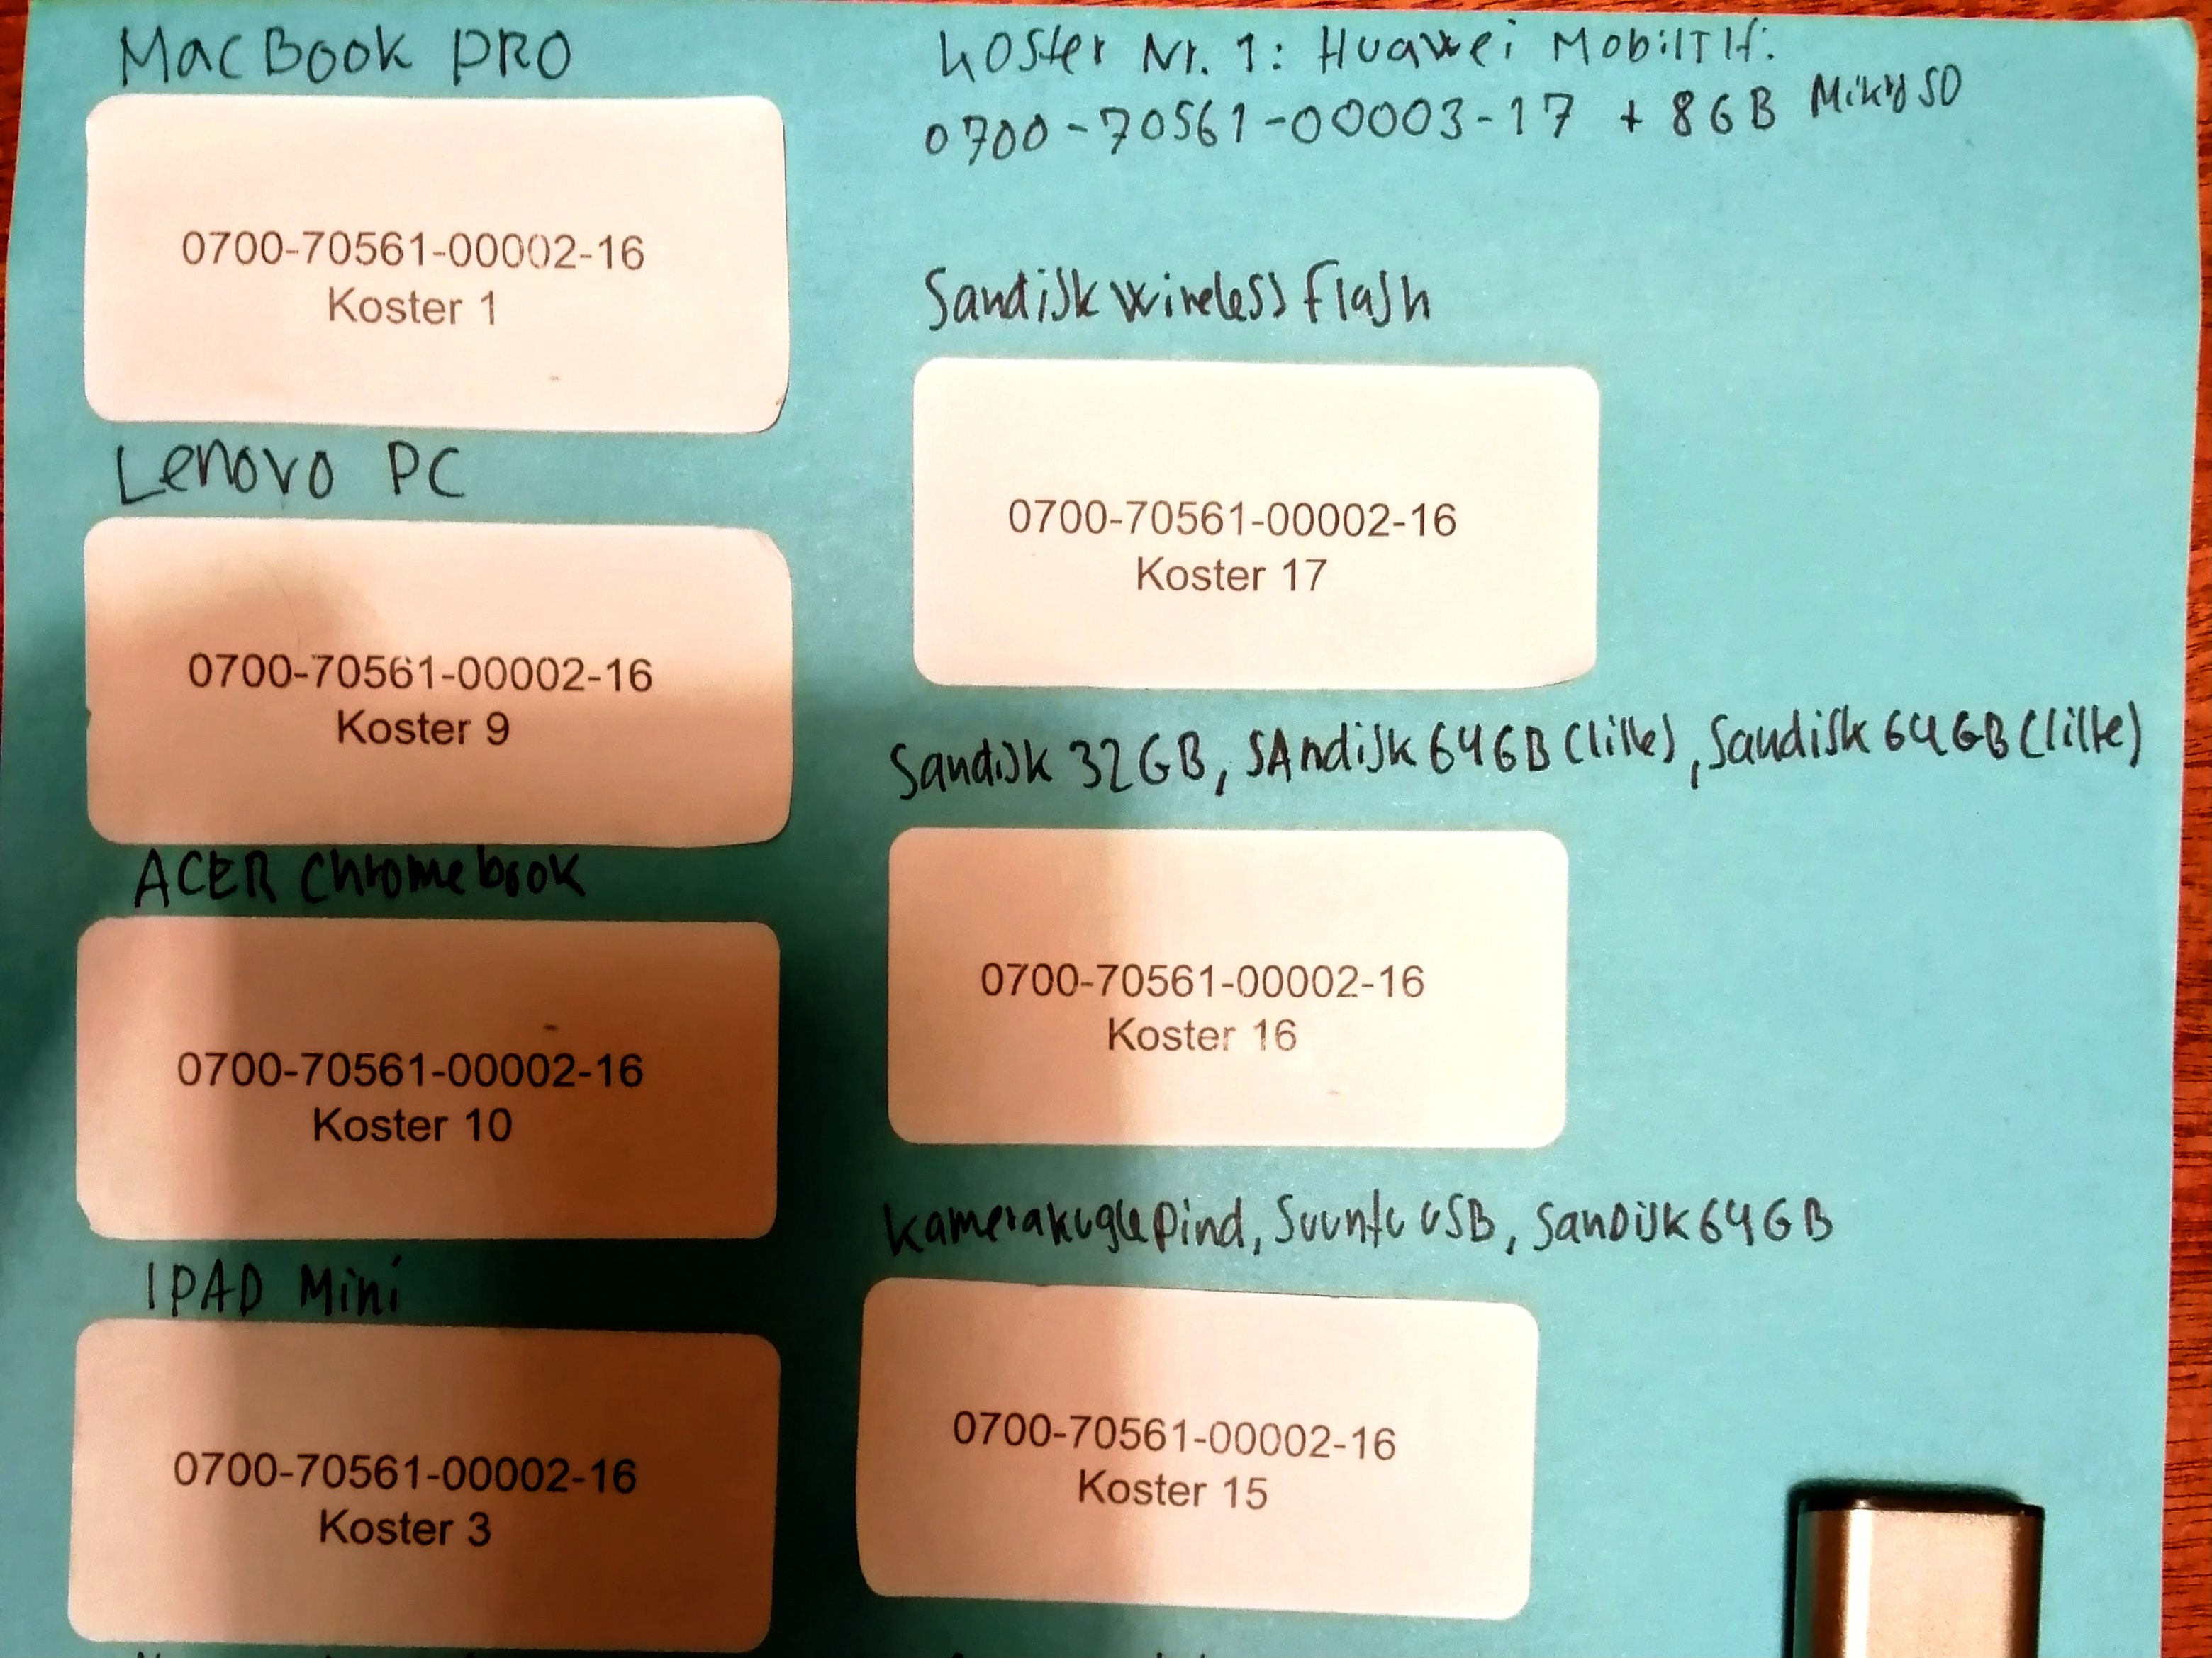 MacBook PRO
0700-70561-00002-16
Koster 1
Lenovo PC
0700-70561-00002-16
Koster 9
ACER Chromebook
0700-70561-00002-16
Koster 10
IPAD Mini
0700-70561-00002-16
Koster 3
Koster Nr. 1: Huawei MobilTlf:
0700-70561-00003-17 + 8GB Mikro SD
Sandisk wireless flash
0700-70561-00002-16
Koster 17
Sandisk 32GB, SAndisk 64GB (lille), Sandisk 64GB (lille)
0700-70561-00002-16
Koster 16
Kamerakuglepind, Suunto USB, SanDisk 64GB
0700-70561-00002-16
Koster 15